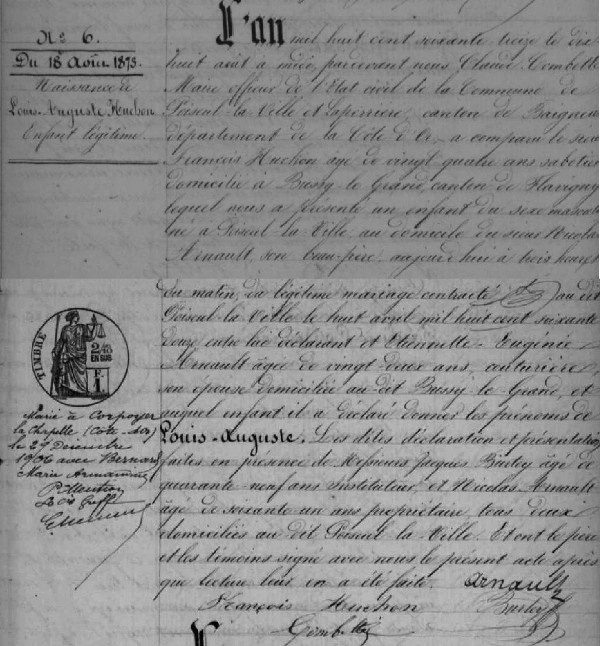 N° 6.
Du 18 Août 1873.
Naissance de
Louis-Auguste Huchon
Enfant légitime.
L'an mil huit cent soixante treize le dix
huit août à midi, pardevant nous Claude Combette
Maire officier de l'Etat civil de la Commune de
Poiseul la Ville et Laperrière, canton de Baigneux
département de la Côte d'Or, a comparu le sieur
François Huchon âgé de vingt quatre ans sabotier
domicilié à Bussy le Grand, canton de Flavigny
lequel nous a présenté un enfant du sexe masculin
né à Poiseul-la-Ville au domicile du sieur Nicolas
Arnault, son beau-père, aujourd'hui à trois heures
du matin, du légitime mariage contracté au dit
Poiseul la Ville le huit avril mil huit cent soixante
douze entre lui déclarant et Etiennette Eugénie
Arnault âgée de vingt deux ans, couturière,
son épouse domiciliée au dit Bussy le Grand, et
auquel enfant il a déclaré donner les prénoms de
Louis-Auguste. Les dites déclaration et présentation
faites en présence de Messieurs Jacques Burtey âgé de
quarante neuf ans Instituteur, et Nicolas Arnault
âgé de soixante un ans propriétaire, tous deux
domiciliés au dit Poiseul la Ville. Et ont le père
et les témoins signé avec nous le présent acte après
que lecture leur en a été faite.
Arnault
François Huchon
Burtey
Combette
TIMBRE
2/10
EN SUS
Marié à Corpoyer
la Chapelle (Côte-d'Or)
le 27 Décembre
1906 avec Bernard
Marie
P. Mention